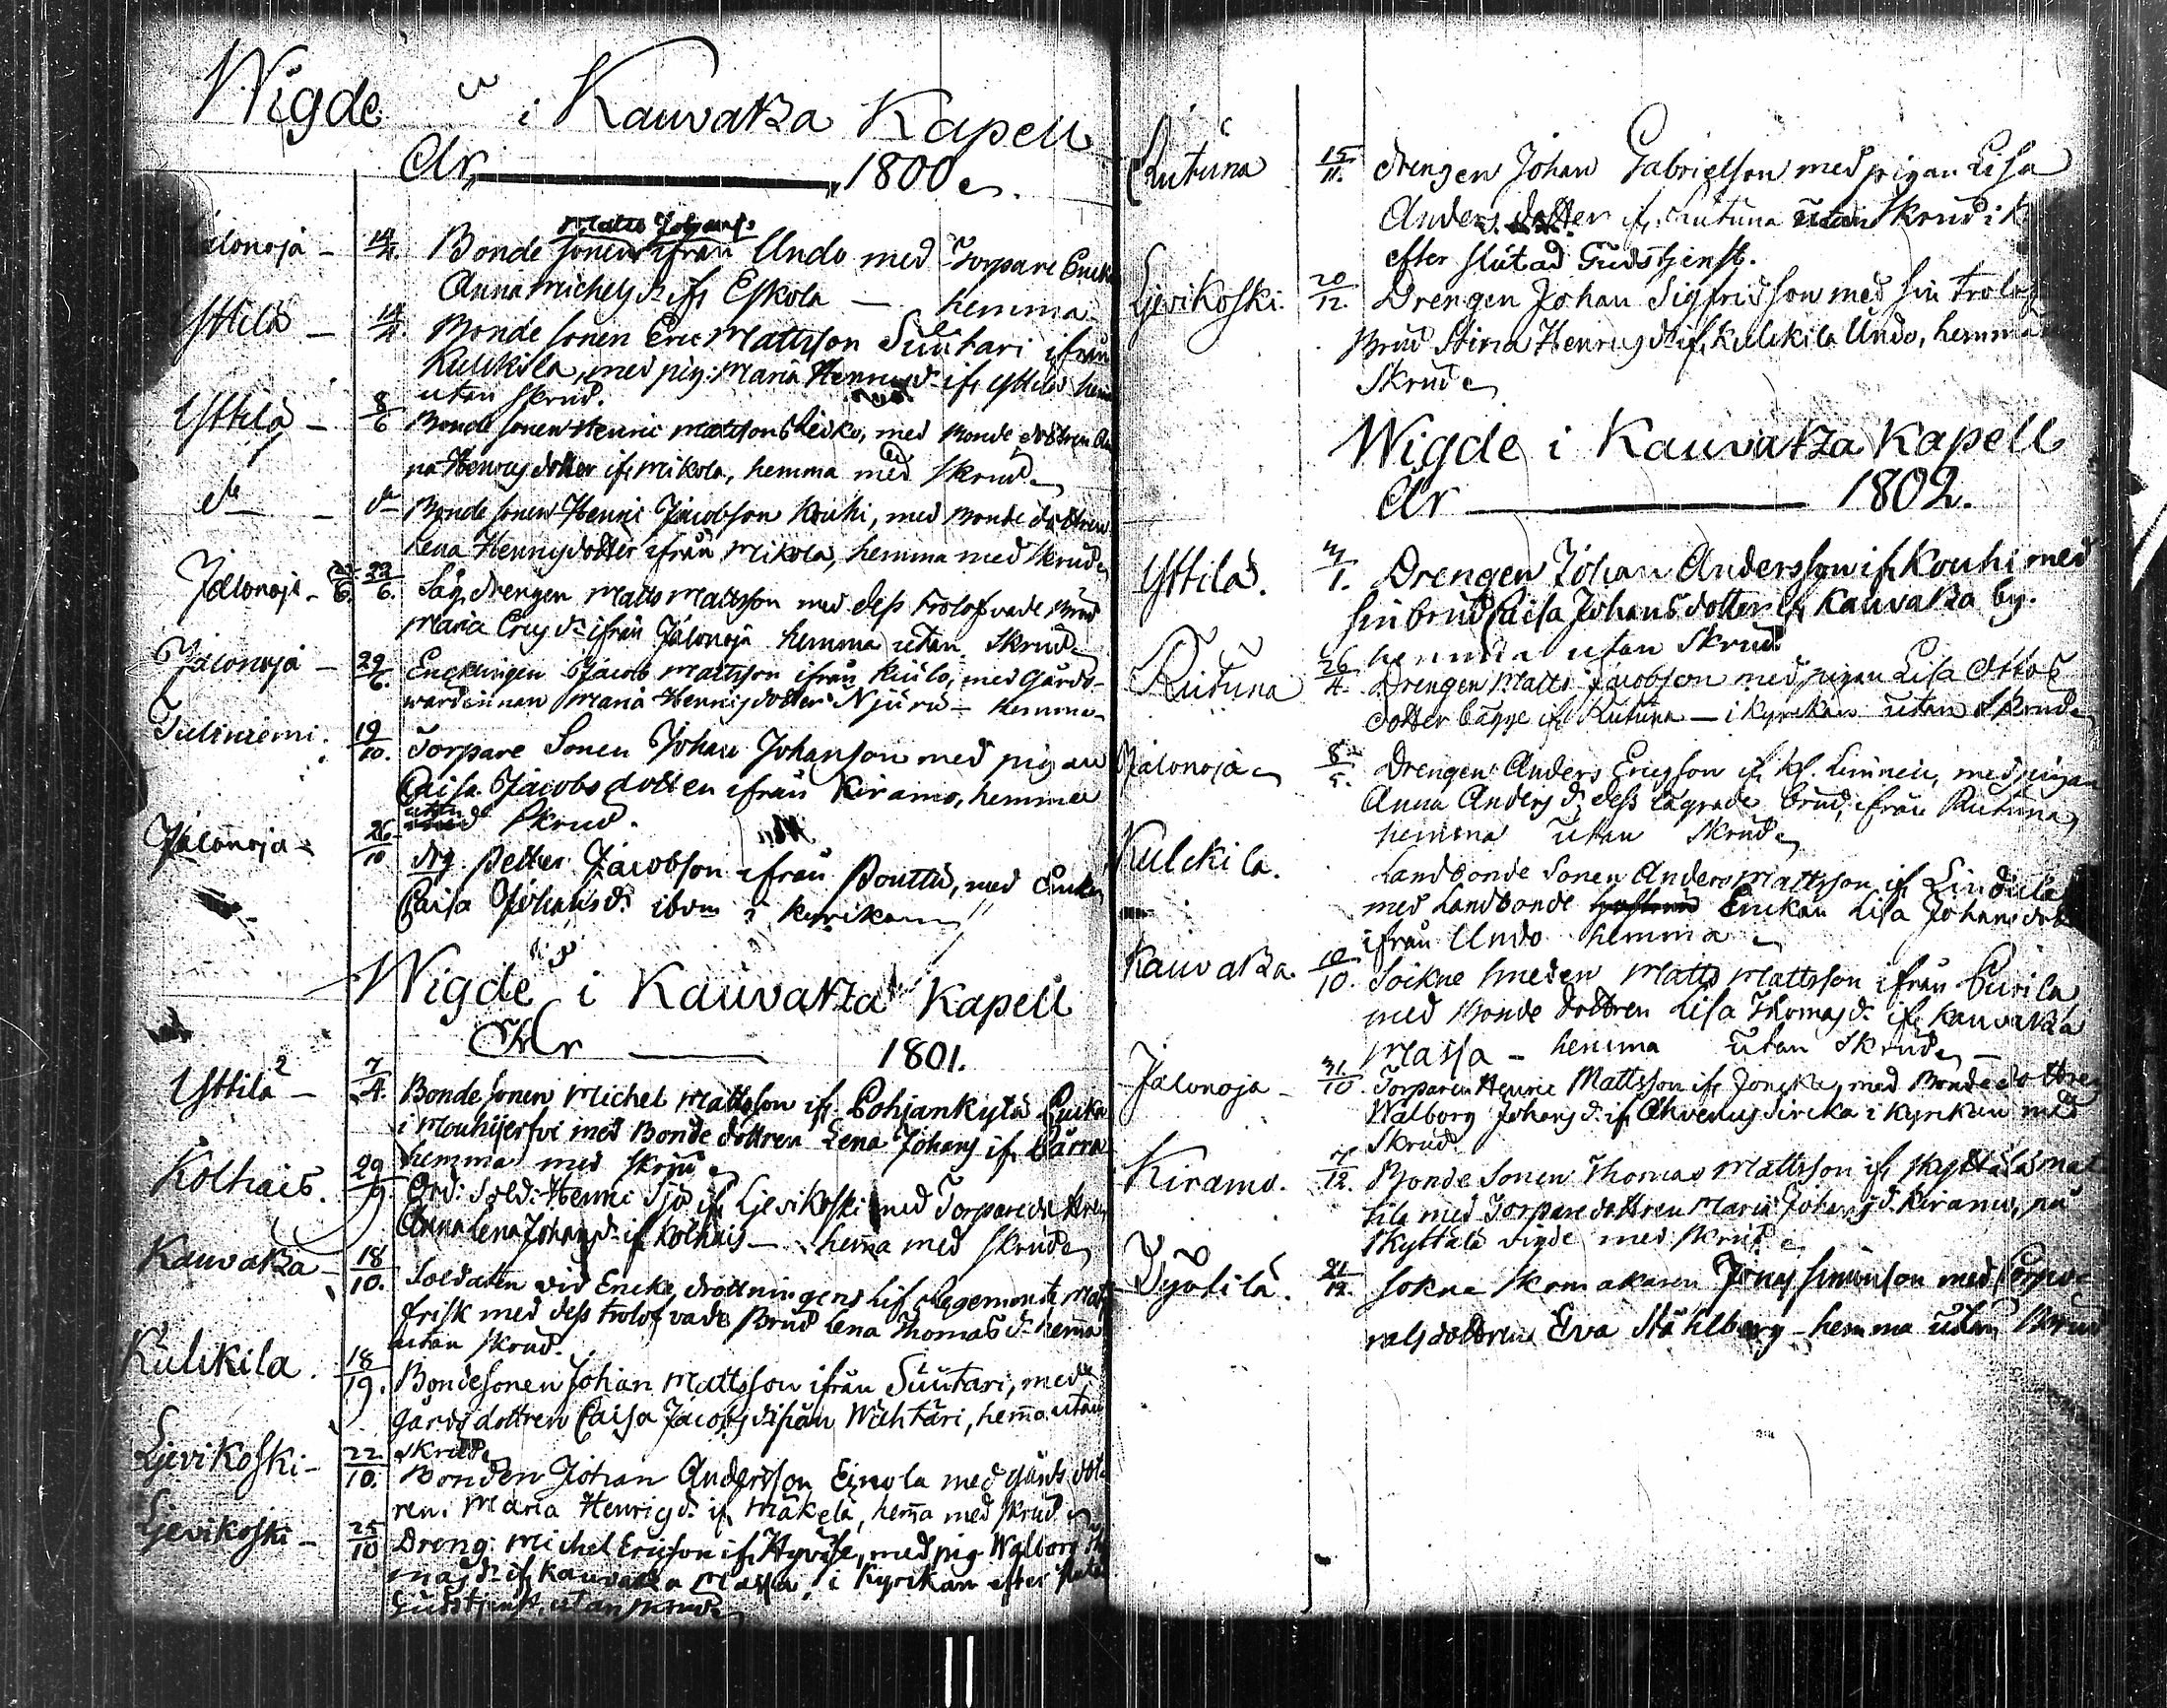 Wigde i Kauvatza Kapell
År 1800
Jalonoja - Matts Johans:
14/4. Bonde sonen ifrån Undo med Torpare Enck
Anna Michelsd:r ifr Eskola — hemma
Yttilä - 14/4. Bonde sonen Eric Mattsson Suutari ifrån
Kulckila, med pig: Maria Henricsd:r ifr Yttilä hem
utan skrud.
Yttilä - 8/6 Bonde sonen Henric Mattsson Heiko, med Bonde dottren An
na Henricsdotter ifr Mikola, hemma med skrud
do - do Bonde sonen Henric Jacobson Kouhi, med Bonde dottren
Lena Henricsdotter ifrån Mikola, hemma med skrud
Jalonoja - 22/6. Såg drengen Matts Mattsson med dess trolofvade Brud
Maria Ericsd:r ifrån Jalonoja hemma utan skrud
Jalonoja - 29/6. Encklingen Jacob Mattsson ifrån Kiilo, med Gårds-
wärdinnan Maria Henricsdotter Njuru - hemma
Juliniemi. 19/10. Torpare Sonen Johan Johanson med pigan
Caisa Jacobsdotter ifrån Kiramo, hemma
utan skrud.
Jalonoja - 26/10 drg Petter Jacobson ifrån Pouttu, med Enkan
Caisa Johansd:r ibdm i kyrikan
Wigde i Kauvatza Kapell
År 1801.
Yttilä - 7/4. Bonde sonen Michel Mattsson ifr Pohjankylä
i Mouhijerfvi med Bonde dottren Lena Johans ifr Pärra
hemma med skrud
Kolhais. 29/9. Ord: Sold: Henric Sjö ifr Ljevikoski med Torpare dottren
Anna Lena Johansd:r ifr Kolhais - hem̄a med skrud
Kauvatza - 18/10. Soldaten vid Encke drottningens lif Regemente Matts
Frisk med dess trolofvade Brud Lena Thomasd:r hem̄a
utan skrud.
Kulckila. 18/19. Bondesonen Johan Mattsson ifrån Suutari, med
gårds dottren Caisa Jacobsd: ifrån Wähtäri, hem̄a utan
skrud
Ljevikoski - 22/10. Bonden Johan Andersson Einola med gårds dot
ren: Maria Henricsd:r ifr Mäkelä, hem̄a med skrud
Ljevikoski - 25/10 Dreng: Michel Ericson ifr Hyvise, med pig Walborg Tho
masd:r ifr Kauvatza Massa, i kyrkan efter slutad
Gudstjenst, utan skrud
Rutuna 15/11. drengen Johan Gabrielson med pigan Lisa
Anders dotter ifr Rutuna utan skrud i k
efter slutad Gudstjenst.
Ljevikoski. 20/12. Drengen Johan Sigfridson med sin trolof
Brud Stina Henricsd:r ifr Kulckila Undo, hemma
Skrud
Wigde i Kauvatza Kapell
År 1802.
Yttilä. Drengen Johan Andersson ifr Kouhi med
sin brud Caisa Johansdotter ifr Kauvatza by.
hemma utan Skrud
Rutuna 26/4. Drengen Matts Jacobson med pigan Lisa Ottos
dotter bägge ifr Rutuna — i kyrckan utan skrud
Jalonoja 8/5. Drengen Anders Ericson ifr Kl. Limnein, med pigan
Anna Andersd:r dess lägrade brud, ifrån Rutuna,
hemma utan skrud
Kulckila. Landbonde Sonen Anders Mattsson ifr Lindula
med Landbonde Enckan Lisa Johans dot
ifrån Undo hemma
Kauvatza. 10/10. Sockne smeden Matts Mattsson ifrån Purila
med Bonde dottren Lisa Thomasd:r ifr Kauvatza
Massa - hemma utan skrud
Jalonoja - 31/10 Torparen Henric Mattsson ifr Joncka, med Bonde dottren
Walborg Johansd:r ifr Ahvenus Sircka i kyrckan med
Skrud
Kiramo. Bonde Sonen Thomas Mattsson ifr Skyttälä Mat
tila med Torpare dottren Maria Johansd: Kiramo, på
Skyttälä vigde med skrud
21/12. Sokne skomakaren Jonas Simonson med Corpo
rals dottren Eva Ståhlberg - hemma utan Skrud